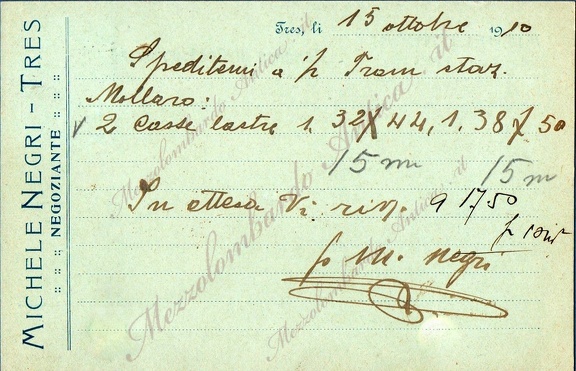 MICHELE NEGRI - TRES
NEGOZIANTE
Tres, li 15 ottobre 1910
Speditemi a p Tram staz.
Mollaro:
2 casse lastre 1. 32X44, 1. 38X50
15 m 15 m
In attesa Vi riv. 9 17.50
p. M. Negri
Mezzolombardo Antica .it
Mezzolombardo Antica .it